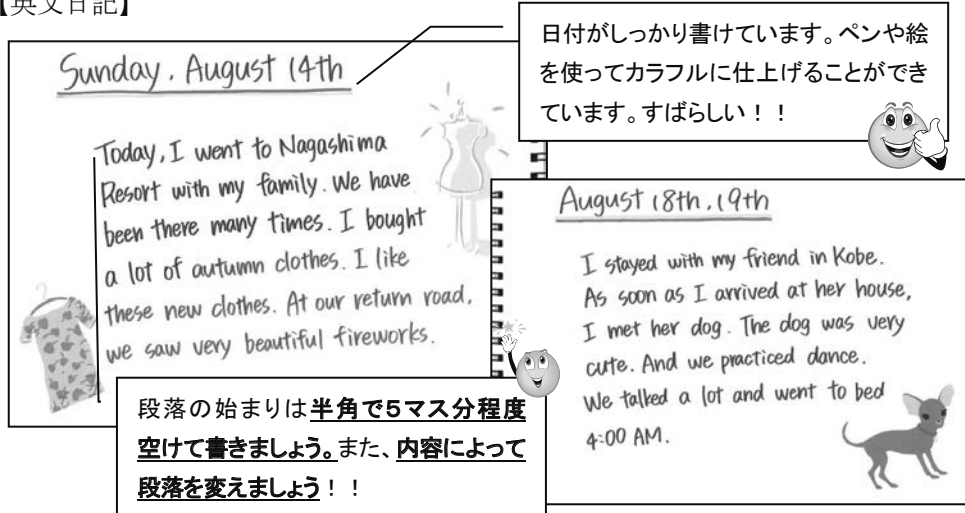 【英文日記】
Sunday, August 14th
Today, I went to Nagashima
Resort with my family. We have
been there many times. I bought
a lot of autumn clothes. I like
these new clothes. At our return road,
we saw very beautiful fireworks.
日付がしっかり書けています。ペンや絵
を使ってカラフルに仕上げることができ
ています。すばらしい！！
August 18th, 19th
I stayed with my friend in Kobe.
As soon as I arrived at her house,
I met her dog. The dog was very
cute. And we practiced dance.
We talked a lot and went to bed
4:00 AM.
段落の始まりは半角で5マス分程度
空けて書きましょう。また、内容によって
段落を変えましょう！！